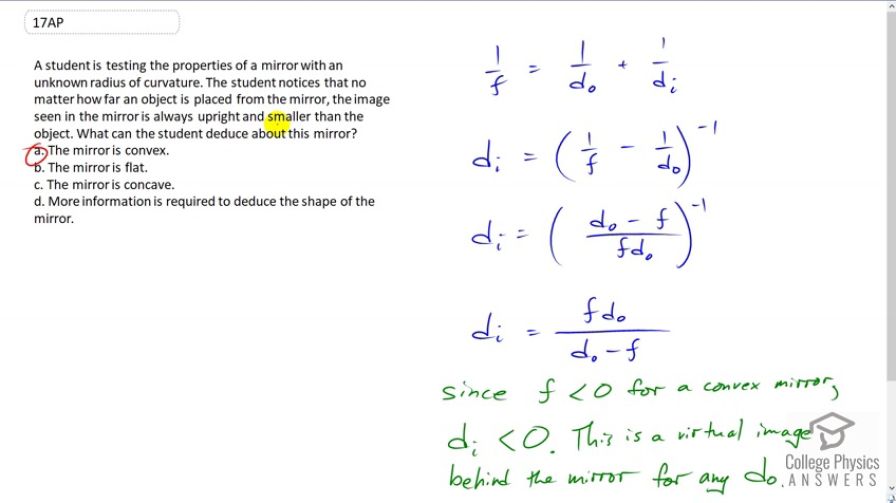 17AP
A student is testing the properties of a mirror with an
unknown radius of curvature. The student notices that no
matter how far an object is placed from the mirror, the image
seen in the mirror is always upright and smaller than the
object. What can the student deduce about this mirror?
a. The mirror is convex.
b. The mirror is flat.
c. The mirror is concave.
d. More information is required to deduce the shape of the
mirror.
1/f = 1/dₒ + 1/dᵢ
dᵢ = (1/f − 1/dₒ)⁻¹
dᵢ = ((dₒ − f)/(fdₒ))⁻¹
dᵢ = fdₒ/(dₒ − f)
since f < 0 for a convex mirror,
dᵢ < 0. This is a virtual image
behind the mirror for any dₒ.
College Physics
ANSWERS